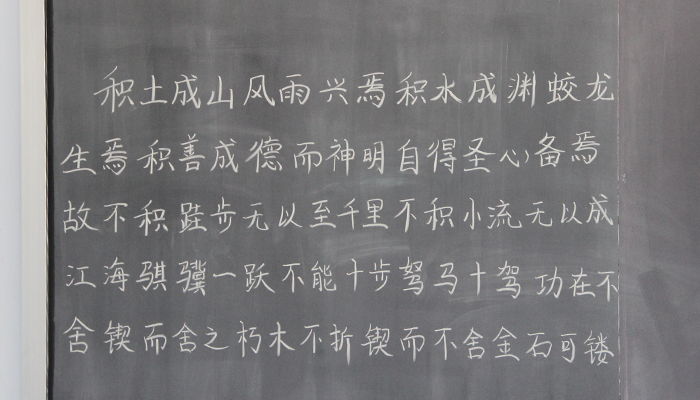 积土成山风雨兴焉积水成渊蛟龙
生焉积善成德而神明自得圣心备焉
故不积跬步无以至千里不积小流无以成
江海骐骥一跃不能十步驽马十驾功在不
舍锲而舍之朽木不折锲而不舍金石可镂